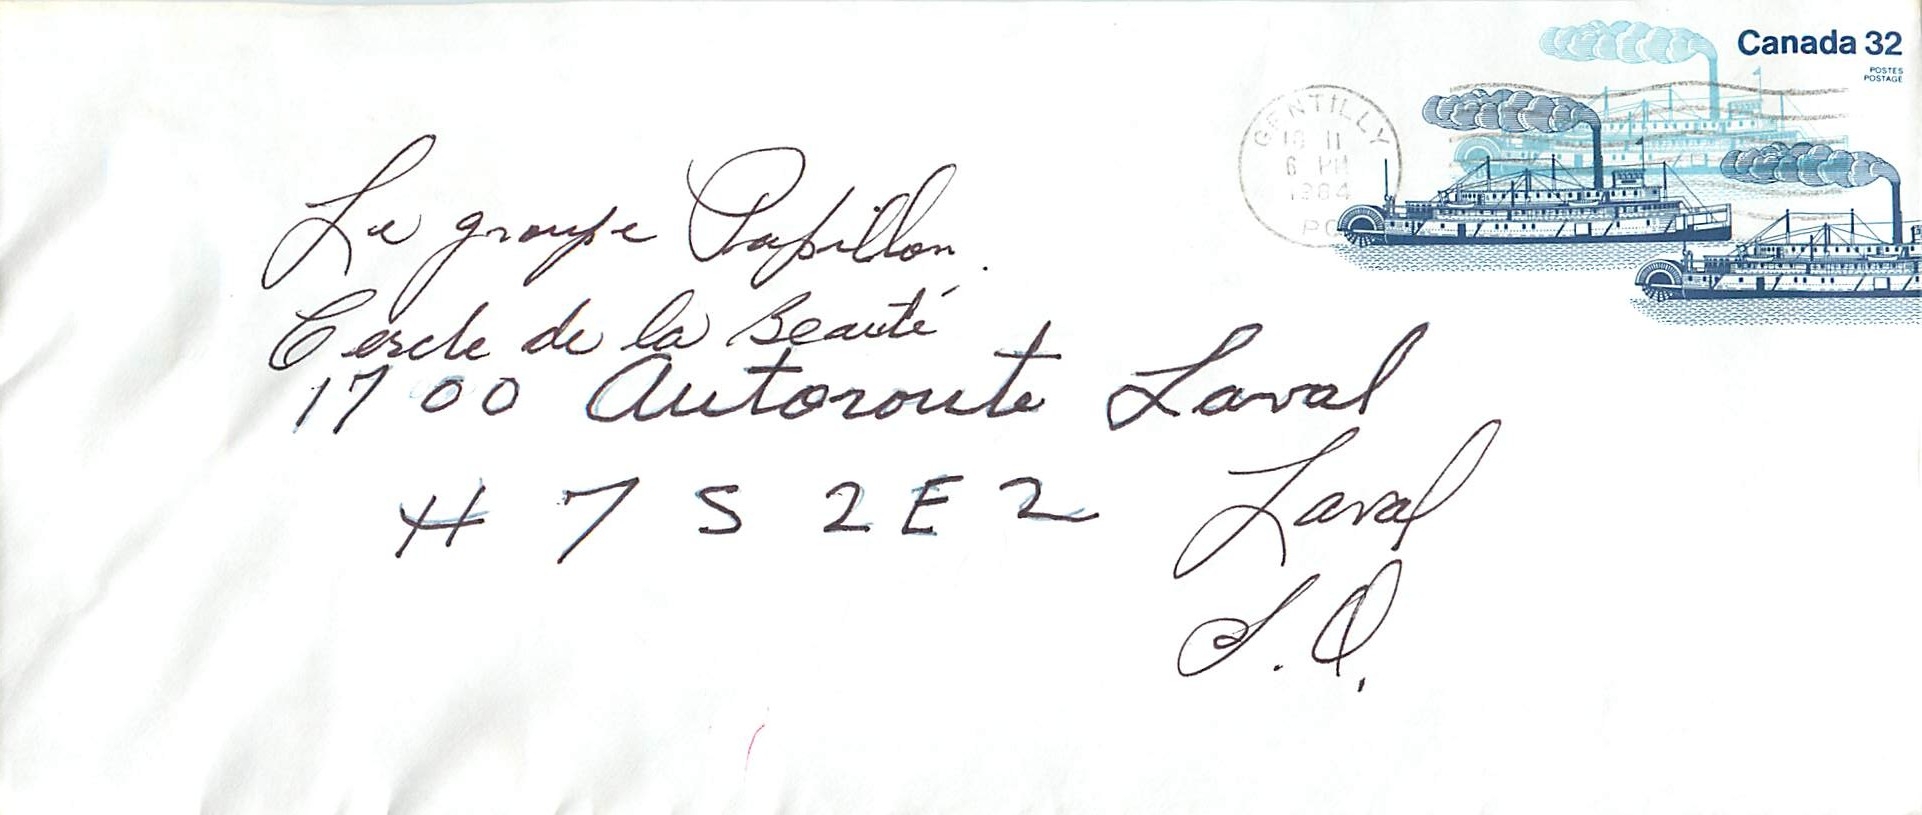 Canada 32
POSTES
POSTAGE
GENTILLY
6 PM
1984
PQ
Le groupe Papillon.
Cercle de la Beauté
1700 Autoroute Laval
H7S 2E2 Laval
P.Q.